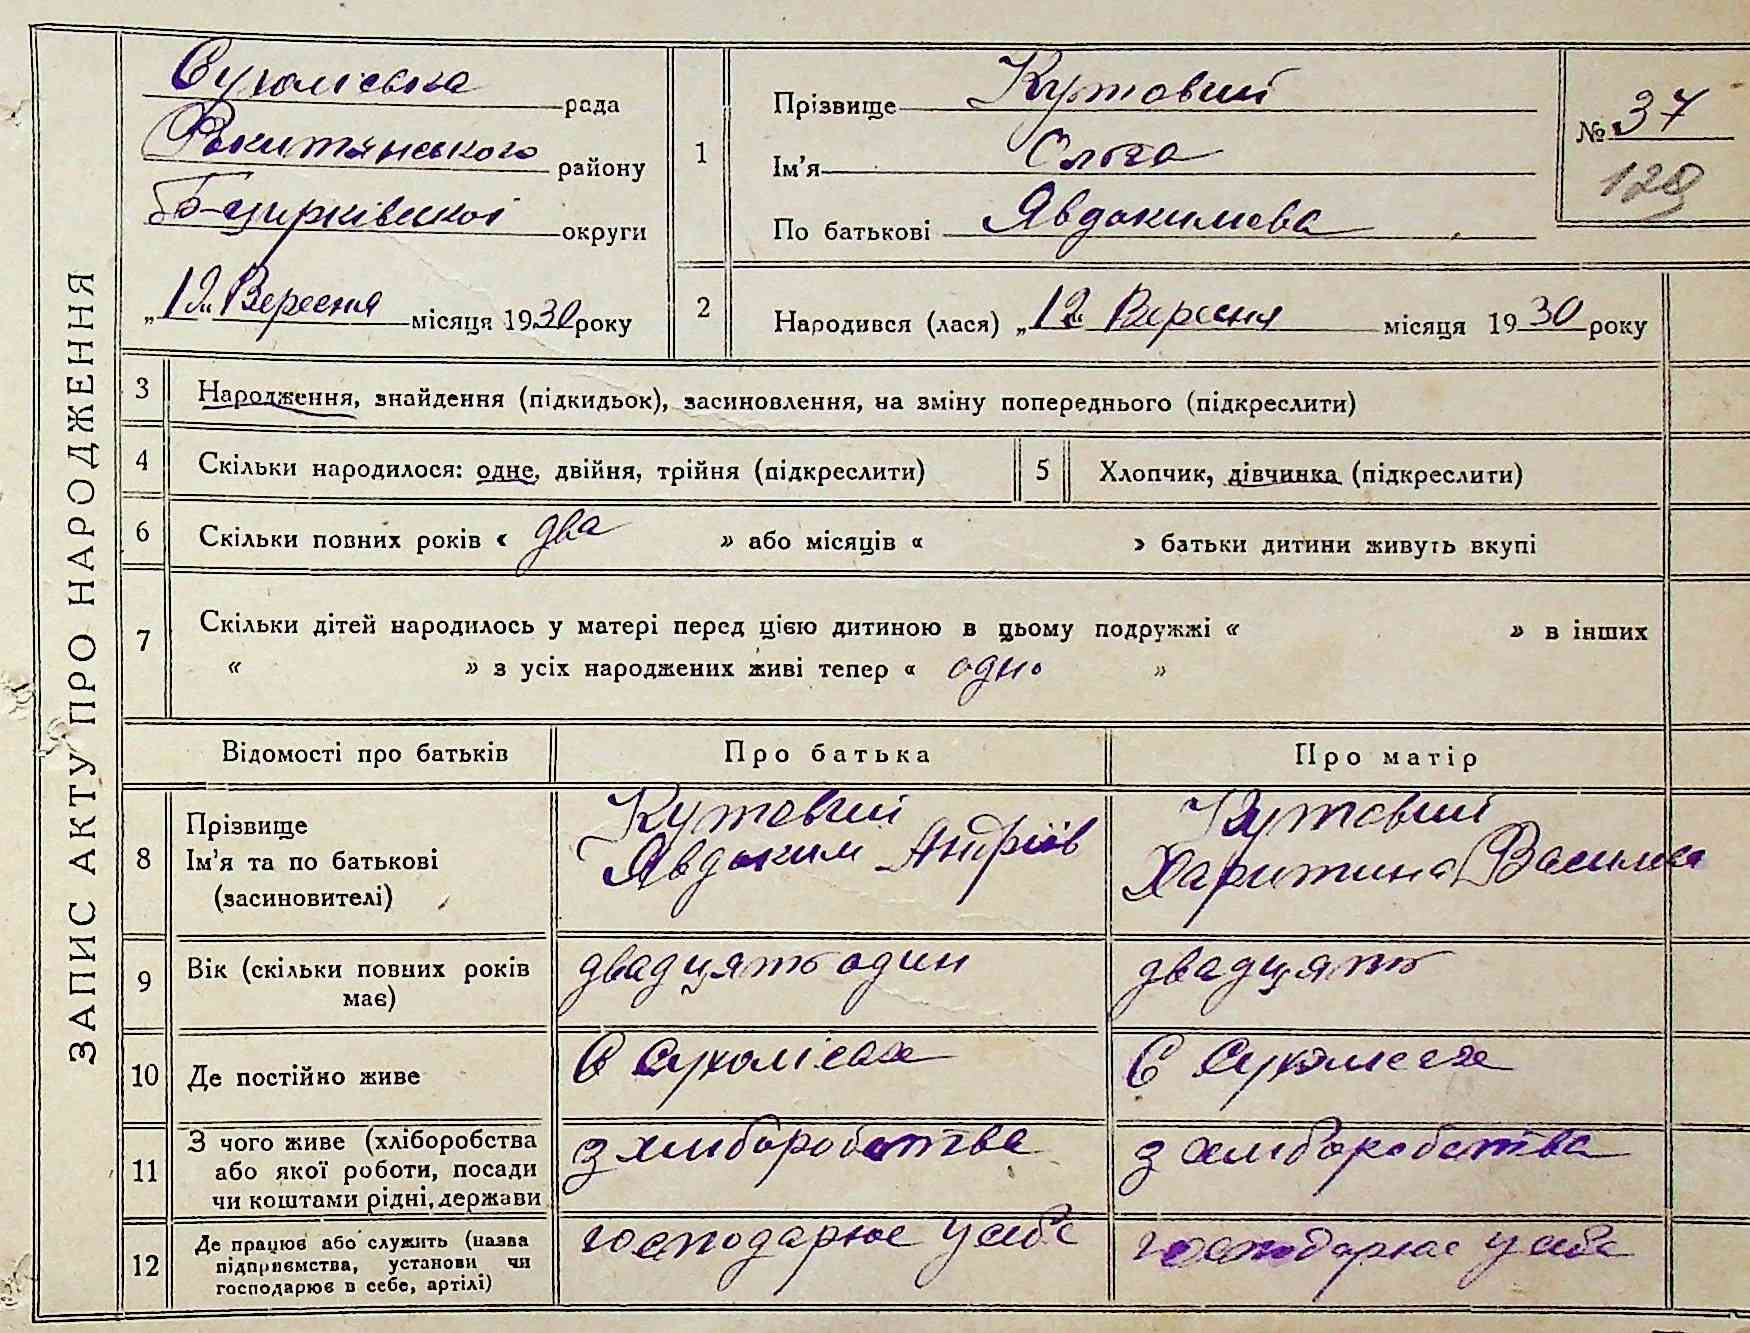 ЗАПИС АКТУ ПРО НАРОДЖЕННЯ
Сухоліська рада
Рокитянського району
Б-Церківської округи
„12" Вересня місяця 1930 року
1
Прізвище Кутовий
Ім'я Ольга
По батькові Явдокимова
№ 37
129
2
Народився (лася) „12" Вересня місяця 1930 року
3 Народження, знайдення (підкидьок), засиновлення, на зміну попереднього (підкреслити)
4 Скільки народилося: одне, двійня, трійня (підкреслити)
5 Хлопчик, дівчинка (підкреслити)
6 Скільки повних років « два » або місяців « » батьки дитини живуть вкупі
7 Скільки дітей народилось у матері перед цією дитиною в цьому подружжі « » в інших
« » з усіх народжених живі тепер « одно »
Відомості про батьків Про батька Про матір
8
Прізвище
Ім'я та по батькові
(засиновителі)
Кутовий
Явдоким Андріїв
Кутовий
Харитина Василівна
9
Вік (скільки повних років
має)
двадцять один
двадцять
10 Де постійно живе
в Сухолісах
в Сухолесах
11
З чого живе (хліборобства
або якої роботи, посади
чи коштами рідні, держави
з хлиборобства
з хлиборобства
12
Де працює або служить (назва
підприємства, установи чи
господарює в себе, артілі)
господарює у себе
господарює у себе